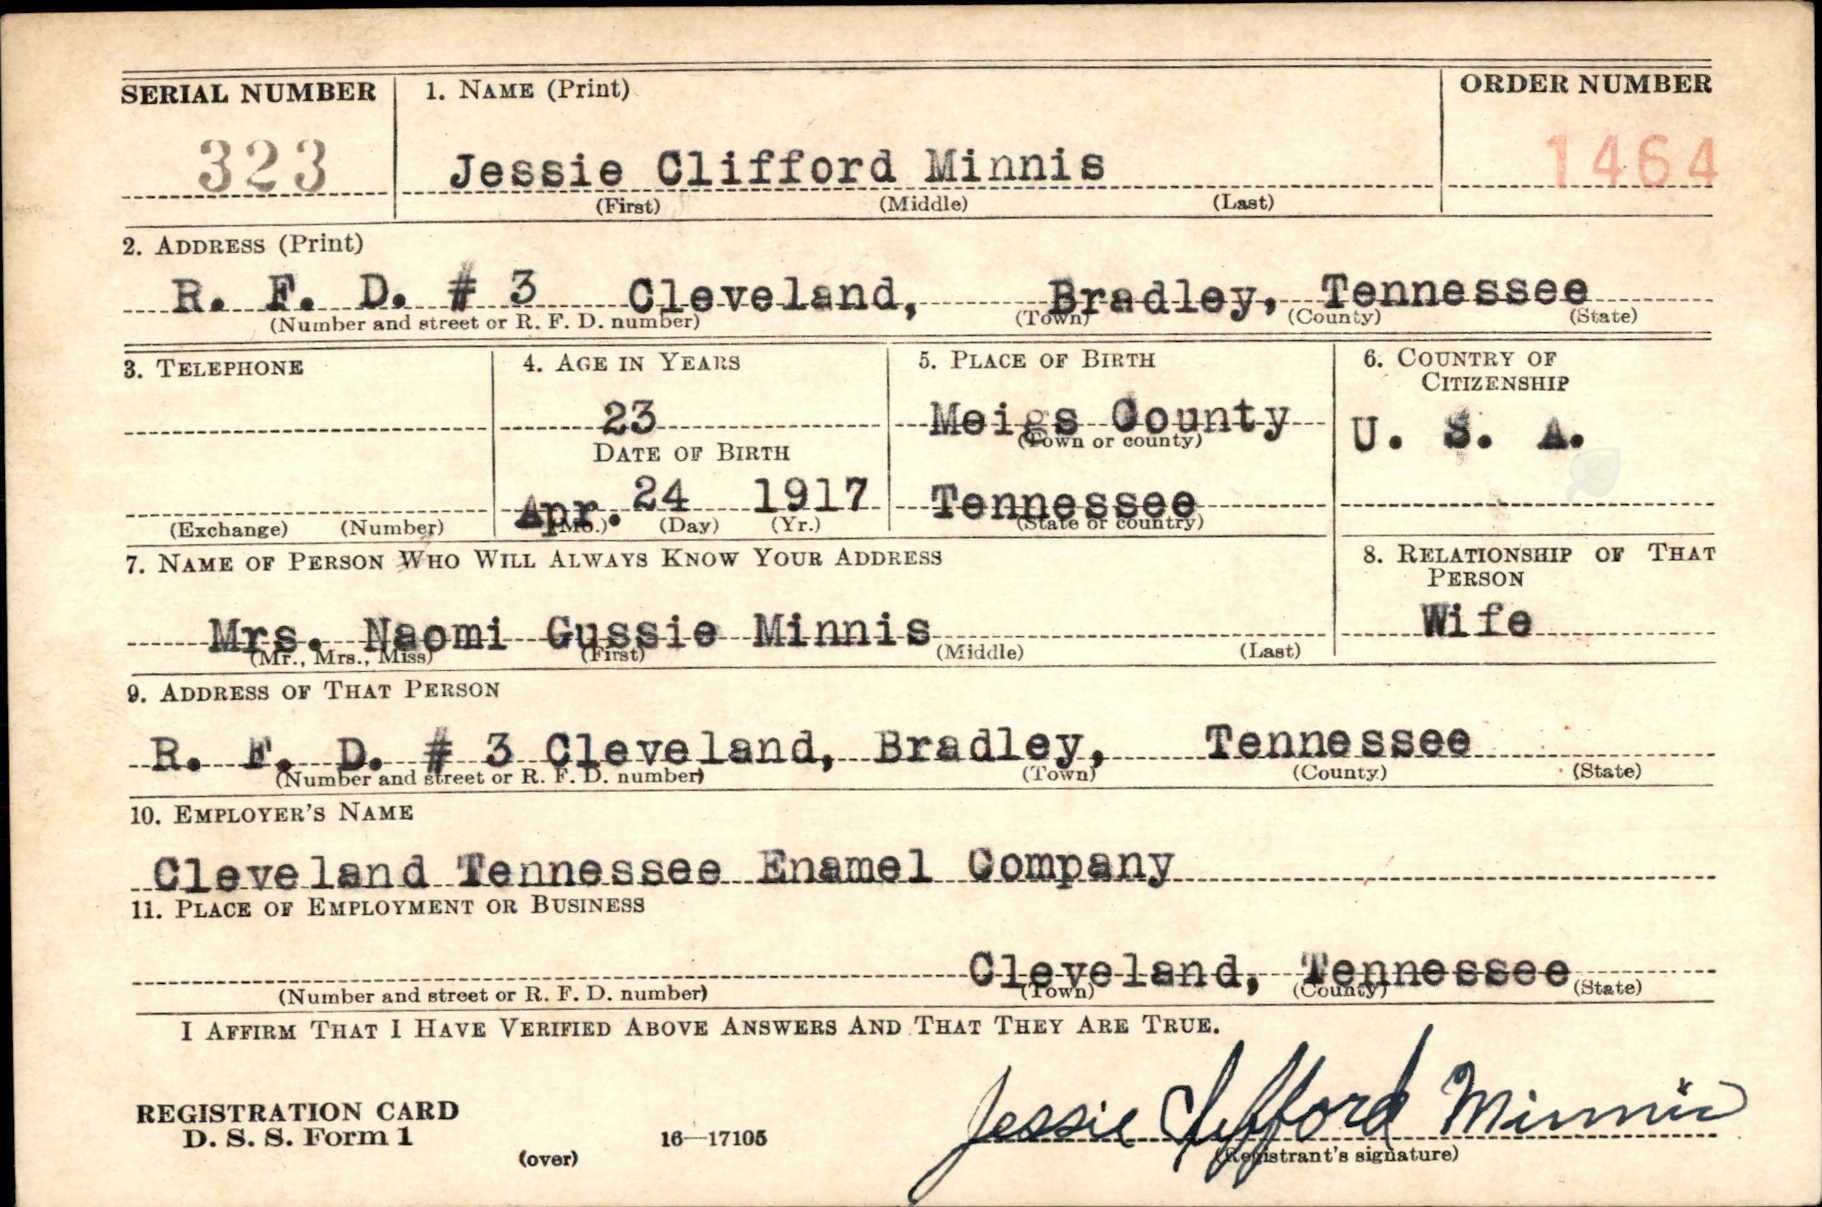 SERIAL NUMBER 1. NAME (Print) ORDER NUMBER
323 Jessie Clifford Minnis 1464
(First) (Middle) (Last)
2. ADDRESS (Print)
R. F. D. # 3 Cleveland, Bradley, Tennessee
(Number and street or R. F. D. number) (Town) (County) (State)
3. TELEPHONE 4. AGE IN YEARS 5. PLACE OF BIRTH 6. COUNTRY OF
CITIZENSHIP
23 Meigs County U. S. A.
(Town or county)
DATE OF BIRTH
Apr. 24 1917 Tennessee
(Exchange) (Number) (Mo.) (Day) (Yr.) (State or country)
7. NAME OF PERSON WHO WILL ALWAYS KNOW YOUR ADDRESS 8. RELATIONSHIP OF THAT
PERSON
Mrs. Naomi Gussie Minnis Wife
(Mr., Mrs., Miss) (First) (Middle) (Last)
9. ADDRESS OF THAT PERSON
R. F. D. # 3 Cleveland, Bradley, Tennessee
(Number and street or R. F. D. number) (Town) (County) (State)
10. EMPLOYER'S NAME
Cleveland Tennessee Enamel Company
11. PLACE OF EMPLOYMENT OR BUSINESS
Cleveland, Tennessee
(Number and street or R. F. D. number) (Town) (County) (State)
I AFFIRM THAT I HAVE VERIFIED ABOVE ANSWERS AND THAT THEY ARE TRUE.
Jessie Clifford Minnis
REGISTRATION CARD
D. S. S. Form 1 (over) 16—17105 (Registrant's signature)